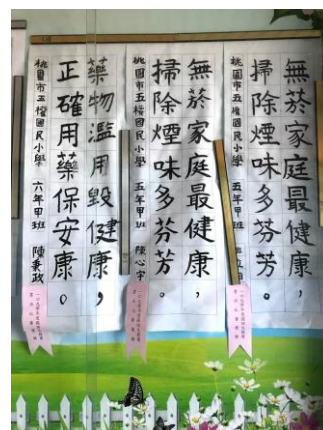 無菸家庭最健康，
掃除煙味多芬芳。
桃園市五權國民小學 五年甲班
無菸家庭最健康，
掃除煙味多芬芳。
桃園市五權國民小學 五年甲班 陳心宇
藥物濫用毀健康，
正確用藥保安康。
桃園市五權國民小學 六年甲班 陳秉政